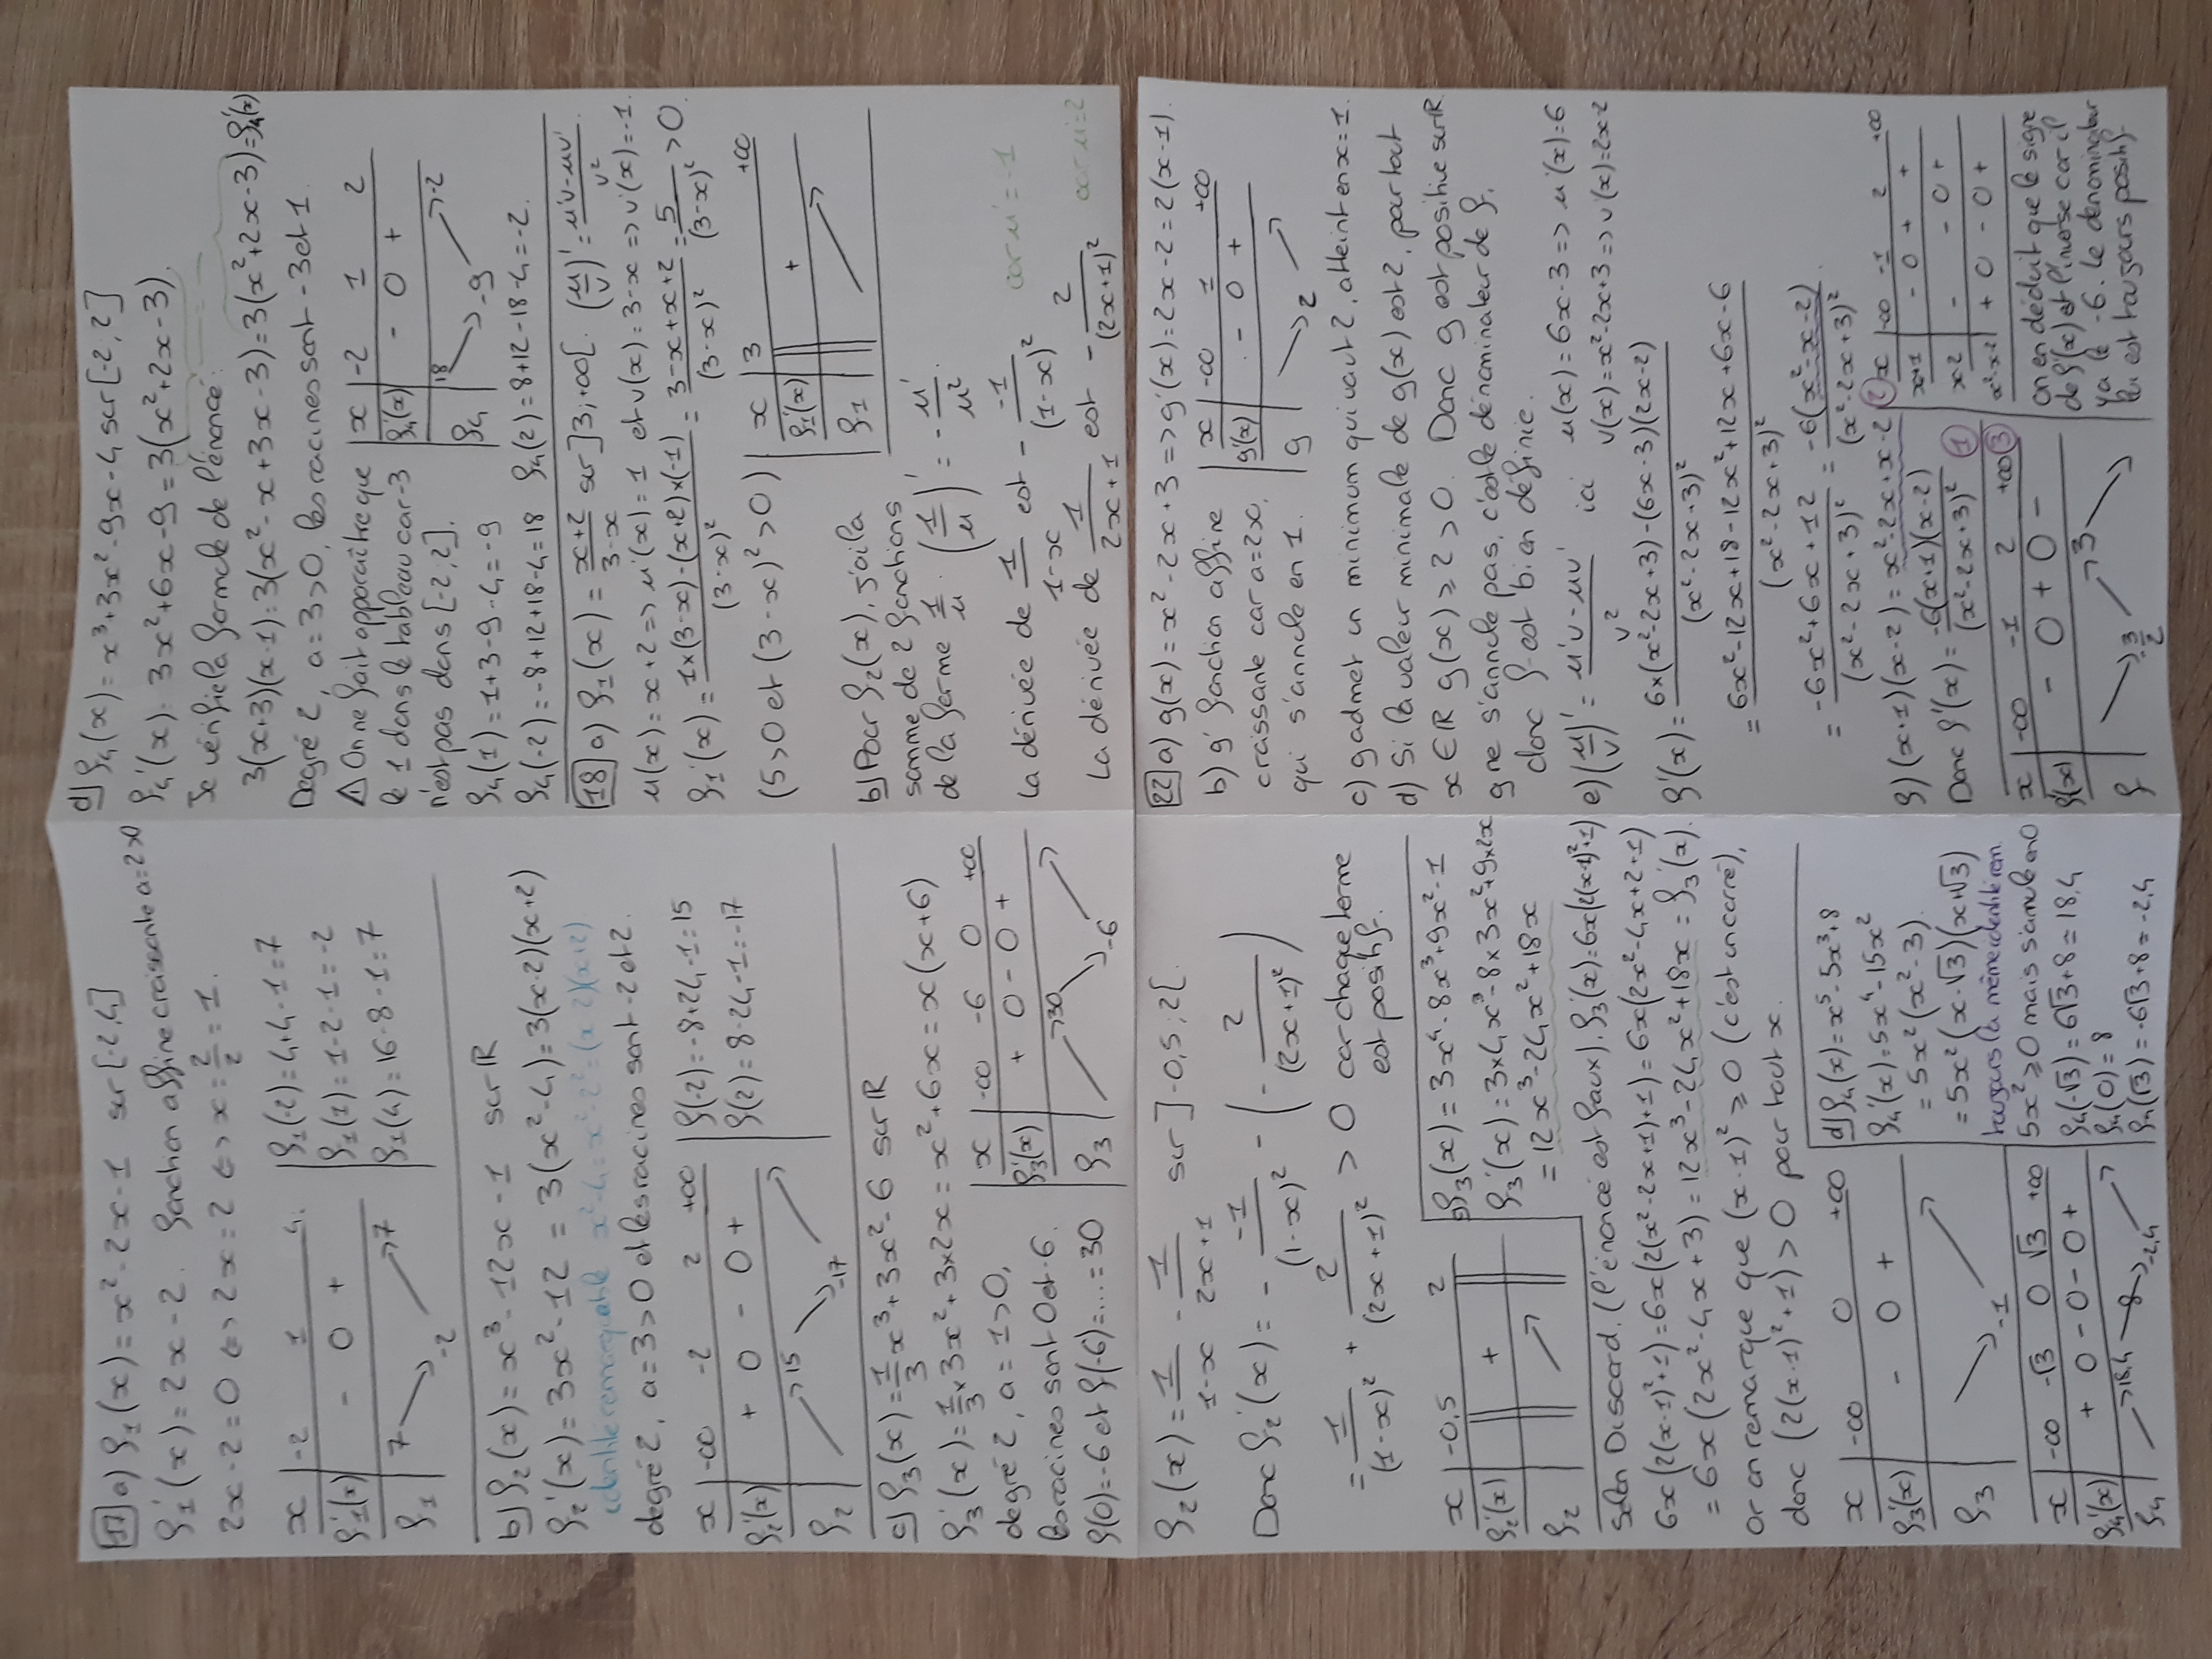 17 a) f₁(x) = x² - 2x - 1 sur [-2,4]
f₁'(x) = 2x - 2. fonction affine croissante a=2>0
2x-2=0 ⇔ 2x=2 ⇔ x = 2/2 = 1.
x | -2 1 4.
f₁'(x) | - 0 +
f₁ | 7 ↘ -2 ↗ 7
f₁(-2)=4+4-1=7
f₁(1)=1-2-1=-2
f₁(4)=16-8-1=7
b) f₂(x) = x³ - 12x - 1 sur ℝ
f₂'(x) = 3x² - 12 = 3(x²-4) = 3(x-2)(x+2)
identité remarquable x²-4=x²-2²=(x-2)(x+2)
degré 2, a=3>0 et les racines sont -2 et 2.
x | -∞ -2 2 +∞
f₂'(x) | + 0 - 0 +
f₂ | ↗ 15 ↘ -17 ↗
f(-2)=-8+24-1=15
f(2)=8-24-1=-17
c) f₃(x) = 1/3 x³ + 3x² - 6 sur ℝ
f₃'(x) = 1/3 × 3x² + 3×2x = x² + 6x = x(x+6)
degré 2, a=1>0,
les racines sont 0 et -6.
f(0)=-6 et f(-6)=...=30
x | -∞ -6 0 +∞
f₃'(x) | + 0 - 0 +
f₃ | ↗ 30 ↘ -6 ↗
d) f₄(x) = x³+3x²-9x-4 sur [-2,2]
f₄'(x) = 3x²+6x-9 = 3(x²+2x-3).
Je vérifie la formule de l'énoncé:
3(x+3)(x-1)=3(x²-x+3x-3)=3(x²+2x-3)=f₄'(x)
Degré 2, a=3>0, les racines sont -3 et 1.
⚠ On ne fait apparaître que
le 1 dans le tableau car -3
n'est pas dans [-2,2].
x | -2 1 2
f₄'(x) | - 0 +
f₄ | 18 ↘ -9 ↗ -2
f₄(1)=1+3-9-4=-9
f₄(-2)=-8+12+18-4=18 f₄(2)=8+12-18-4=-2.
18 a) f₁(x) = (x+2)/(3-x) sur ]3,+∞[. (u/v)' = (u'v-uv')/v²
u(x)=x+2 => u'(x)=1 et v(x)=3-x => v'(x)=-1.
f₁'(x) = (1×(3-x)-(x+2)×(-1))/(3-x)² = (3-x+x+2)/(3-x)² = 5/(3-x)² > 0
(5>0 et (3-x)²>0)
x | 3 +∞
f₁'(x) || +
f₁ || ↗
b) Pour f₂(x), j'ai la
somme de 2 fonctions
de la forme 1/u. (1/u)' = -u'/u².
La dérivée de 1/(1-x) est - (-1)/(1-x)² car u'=-1
La dérivée de 1/(2x+1) est - 2/(2x+1)² car u'=2
f₂(x) = 1/(1-x) - 1/(2x+1) sur ]-0,5;2[.
Donc f₂'(x) = - (-1)/(1-x)² - (- 2/(2x+1)²)
= 1/(1-x)² + 2/(2x+1)² > 0 car chaque terme
est positif.
x | -0,5 2
f₂'(x) || + ||
f₂ || ↗ ||
c) f₃(x) = 3x⁴-8x³+9x²-1
f₃'(x) = 3×4x³-8×3x²+9×2x
= 12x³-24x²+18x
Selon Discord, (l'énoncé est faux), f₃'(x)=6x(2(x-1)²+1)
6x(2(x-1)²+1)=6x(2(x²-2x+1)+1)=6x(2x²-4x+2+1)
= 6x(2x²-4x+3) = 12x³-24x²+18x = f₃'(x).
Or on remarque que (x-1)² ⩾ 0 (c'est un carré),
donc (2(x-1)²+1) > 0 pour tout x.
x | -∞ 0 +∞
f₃'(x) | - 0 +
f₃ | ↘ -1 ↗
d) f₄(x)=x⁵-5x³+8
f₄'(x)=5x⁴-15x²
= 5x²(x²-3).
= 5x²(x-√3)(x+√3)
toujours la même identité rem.
5x² ⩾ 0 mais s'annule en 0
f₄(-√3)=6√3+8≈18,4
f₄(0)=8
f₄(√3)=-6√3+8≈-2,4
x | -∞ -√3 0 √3 +∞
f₄'(x) | + 0 - 0 - 0 +
f₄ | ↗ 18,4 ↘ 8 ↘ -2,4 ↗
22 a) g(x)=x²-2x+3 => g'(x)=2x-2=2(x-1).
b) g' fonction affine
croissante car a=2>0,
qui s'annule en 1.
x | -∞ 1 +∞
g'(x) | - 0 +
g | ↘ 2 ↗
c) g admet un minimum qui vaut 2, atteint en x=1.
d) Si la valeur minimale de g(x) est 2, pour tout
x ∈ ℝ g(x) ⩾ 2 > 0. Donc g est positive sur ℝ.
g ne s'annule pas, c'est le dénominateur de f,
donc f est bien définie.
e) (u/v)' = (u'v-uv')/v² ici u(x)=6x-3 => u'(x)=6
v(x)=x²-2x+3 => v'(x)=2x-2
f'(x) = (6×(x²-2x+3)-(6x-3)(2x-2))/(x²-2x+3)²
= (6x²-12x+18-12x²+12x+6x-6)/(x²-2x+3)²
= (-6x²+6x+12)/(x²-2x+3)² = -6(x²-x-2)/(x²-2x+3)².
f) (x+1)(x-2)=x²-2x+x-2
Donc f'(x) = -6(x+1)(x-2)/(x²-2x+3)² ①
② x | -∞ -1 2 +∞
x+1 | - 0 + +
x-2 | - - 0 +
x²-x-2 | + 0 - 0 +
on en déduit que le signe
de f'(x) est l'inverse car il
y a le -6. Le dénominateur
lui est toujours positif
x | -∞ -1 2 +∞ ③
f'(x) | - 0 + 0 -
f | ↘ -3/2 ↗ 3 ↘